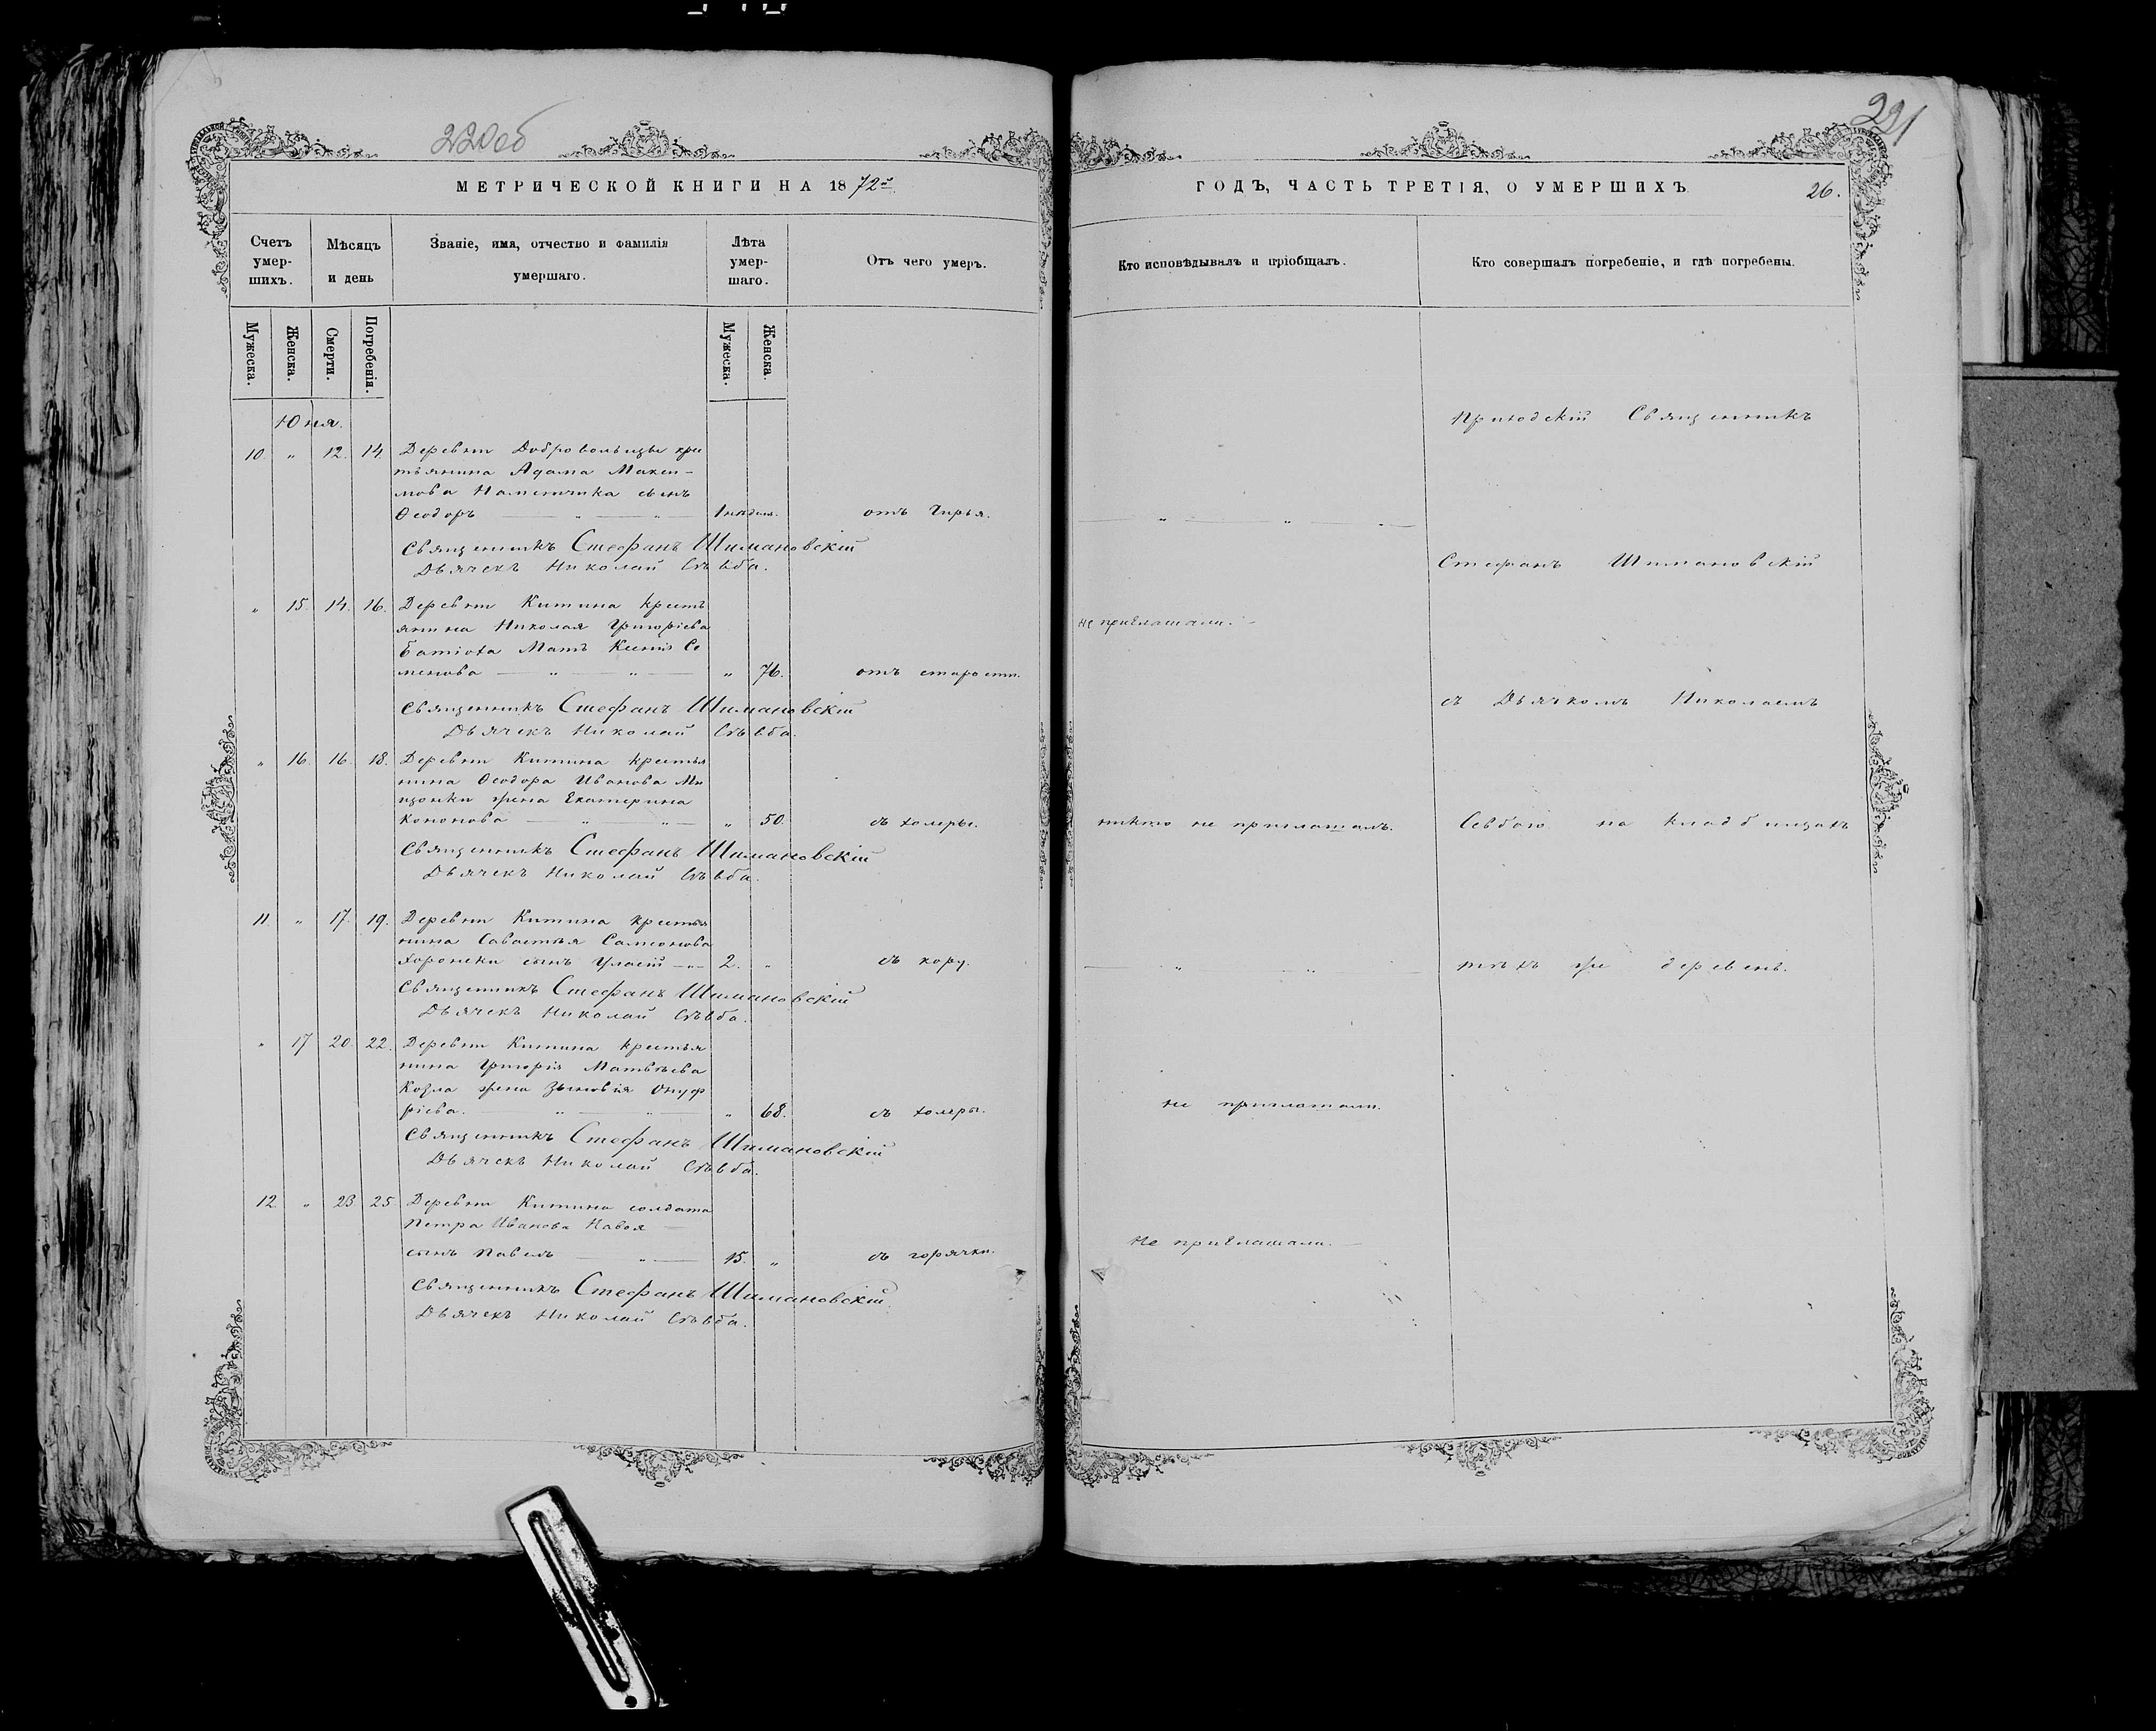 220об
221
МЕТРИЧЕСКОЙ КНИГИ НА 1872й
ГОДЪ, ЧАСТЬ ТРЕТІЯ, О УМЕРШИХЪ
26.
Счетъ умер-шихъ.
Мѣсяцъ и день
Званіе, имя, отчество и фамилія умершаго.
Лѣта умер-шаго.
Отъ чего умеръ.
Кто исповѣдывалъ и пріобщалъ.
Кто совершалъ погребеніе, и гдѣ погребены.
Мужеска.
Женска.
Смерти.
Погребенія.
Мужеска.
Женска.
Юня.
10. „ 12. 14. Деревни Добровольцы кре
стьянина Адама Макси-
мова сынъ
Ѳеодоръ — „ — „ — 1 недѣля. отъ Чирья.
Священникъ Стефанъ Шимановскій
Дьячекъ Николай Сѣвба.
„ 15. 14. 16. Деревни Китина кресть
янина Николая Григоріева
Матъ Ксенія Се
менова — „ — „ — „ 76. отъ старости.
не приглашали.
Священникъ Стефанъ Шимановскій
Дьячекъ Николай Сѣвба.
„ 16. 16. 18. Деревни Китина крестья
нина Ѳеодора Иванова Ми
цонки жена Екатерина
Кононова — „ — „ — „ 50. съ холеры.
никто не приглашалъ.
Священникъ Стефанъ Шимановскій
Дьячекъ Николай Сѣвба.
11. „ 17. 19. Деревни Китина крестья
нина Савастѣя Самсонова
Хоронеки сынъ — „ — 2. „ съ кору.
Священникъ Стефанъ Шимановскій
Дьячекъ Николай Сѣвба.
„ 17 20. 22. Деревни Китина крестья
нина Григорія Матвѣева
Козла жена Зѣновія Онуф
ріева. — „ — „ — „ 68. съ холеры.
не приглашали.
Священникъ Стефанъ Шимановскій
Дьячекъ Николай Сѣвба.
12. „ 23. 25. Деревни Китина солдата
Петра Иванова Навоя —
сынъ Павелъ — „ — 15. „ съ горячки.
Не приглашали. —
Священникъ Стефанъ Шимановскій.
Дьячекъ Николай Сѣвба.
Приходскій Священникъ
Стефанъ Шимановскій
съ Дьячкомъ Николаемъ
Севбою на кладбищахъ
тѣхъ же деревень.